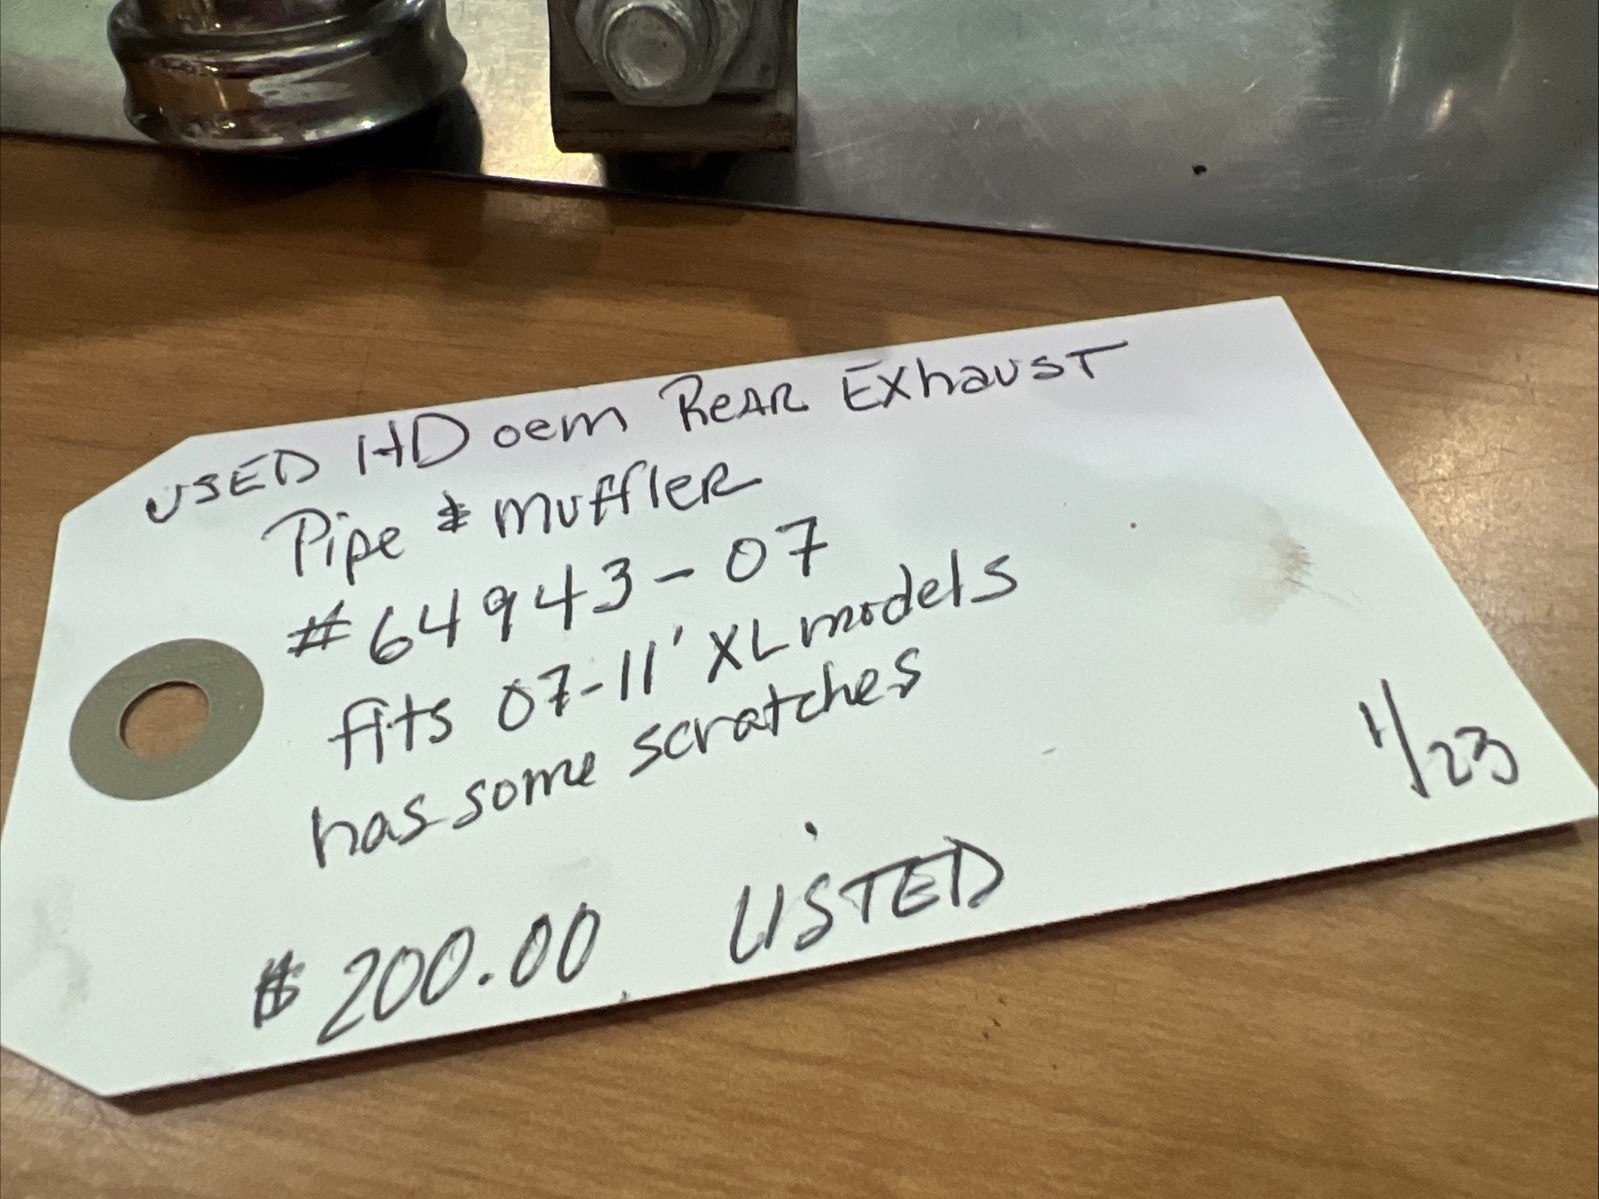 USED HD oem REAR EXhaUST
Pipe & muffleR
#64943-07
fits 07-11' XL models
has some scratches
1/23
$200.00 LISTED